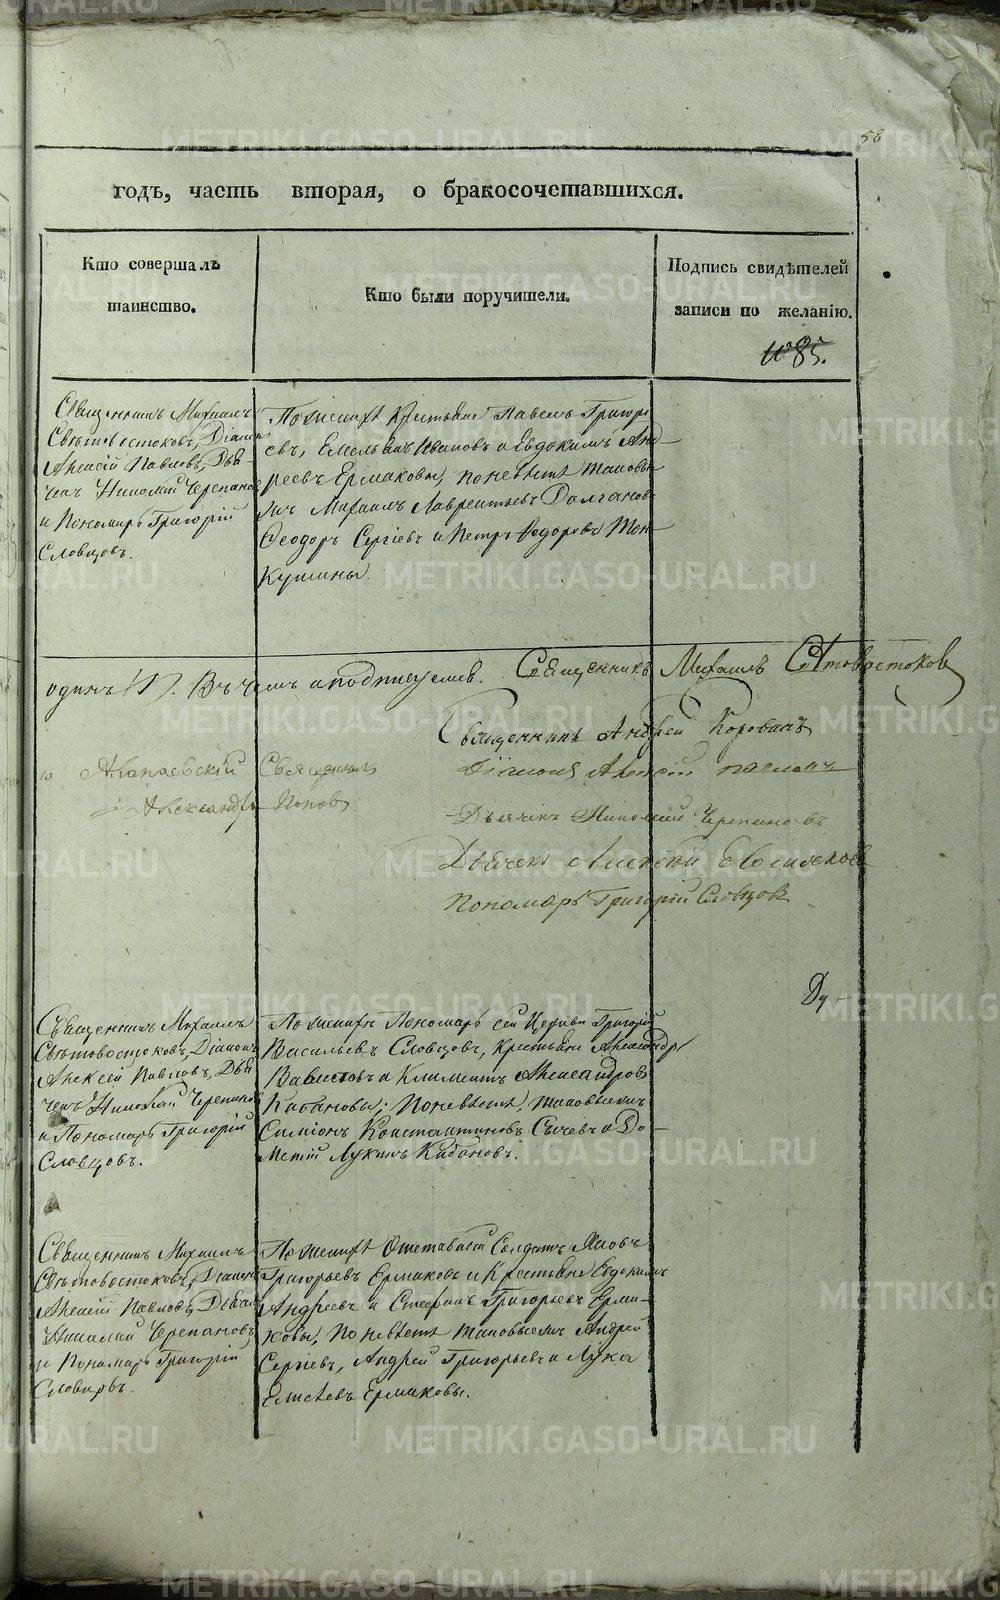 58
годъ, часть вторая, о бракосочетавшихся.
Кто совершалъ
таинство.
Кто были поручители.
Подпись свидѣтелей
записи по желанію.
№ 85.
Священникъ Михаилъ
Свѣтовостоковъ, Діаконъ
Алексій Павловъ, Дья-
чекъ Николай Черепановъ
и Пономарь Григорій
Словцовъ.
По женихѣ Крестьяне Павелъ Григорь
евъ, Емельянъ Ивановъ и Евдокимъ Анд
реевъ Ермаковы, по невѣстѣ таковы
лъ Михаилъ Лаврентьевъ Долгановъ
Ѳеодоръ Сергіевъ и Петръ Ѳедоровъ Тон
кушины.
одинъ. Въ чемъ и подписуемся. Священникъ Михаилъ Свѣтовостоковъ
Священникъ Андрей Коровинъ
Алапаевскій Священникъ
Александръ Поповъ
Діаконъ Алексій Павловъ
Дьячекъ Николай Черепановъ
Дьячекъ Алексѣй
Пономарь Григорій Словцовъ
Ду
Священникъ Михаилъ
Свѣтовостоковъ, Діаконъ
Алексей Павловъ, Дья
чекъ Николай Черепановъ
и Пономарь Григорій
Словцовъ.
По женихѣ Пономарь сей Церкви Григорій
Васильевъ Словцовъ, Крестьяне Александръ
и Климентъ Александровъ
Кабановы; По невѣстѣ, таковыежъ
Симіонъ Константиновъ Сычевъ и До-
метій Лукинъ Кабановъ.
Священникъ Михаилъ
Свѣтовостоковъ, Діаконъ
Алексій Павловъ, Дьячекъ
Николай Черепановъ,
и Пономарь Григорій
Словцовъ.
По женихѣ Отставный Солдатъ Яковъ
Григорьевъ Ермаковъ и Крестьяне Евдокимъ
Андреевъ и Стефанъ Григорьевъ Ерма-
ковы, По невѣстѣ таковыежъ Андрей
Сергіевъ, Андрей Григорьевъ и Лука
Елисѣевъ Ермаковы.
METRIKI.GASO-URAL.RU